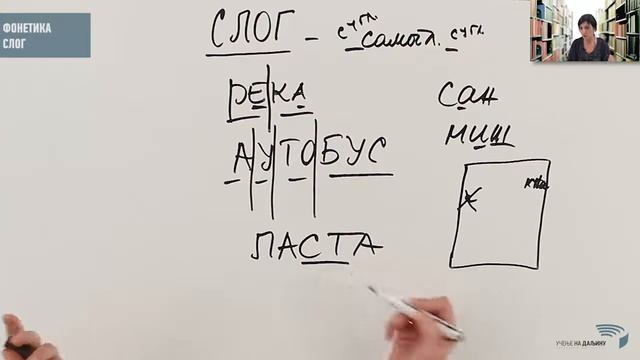 ФОНЕТИКА
СЛОГ
СЛОГ – сугл. самогл. сугл.
РЕ|КА
А|У|ТО|БУС
ПАСТА
САН
МИШ
УЧЕЊЕ НА ДАЉИНУ